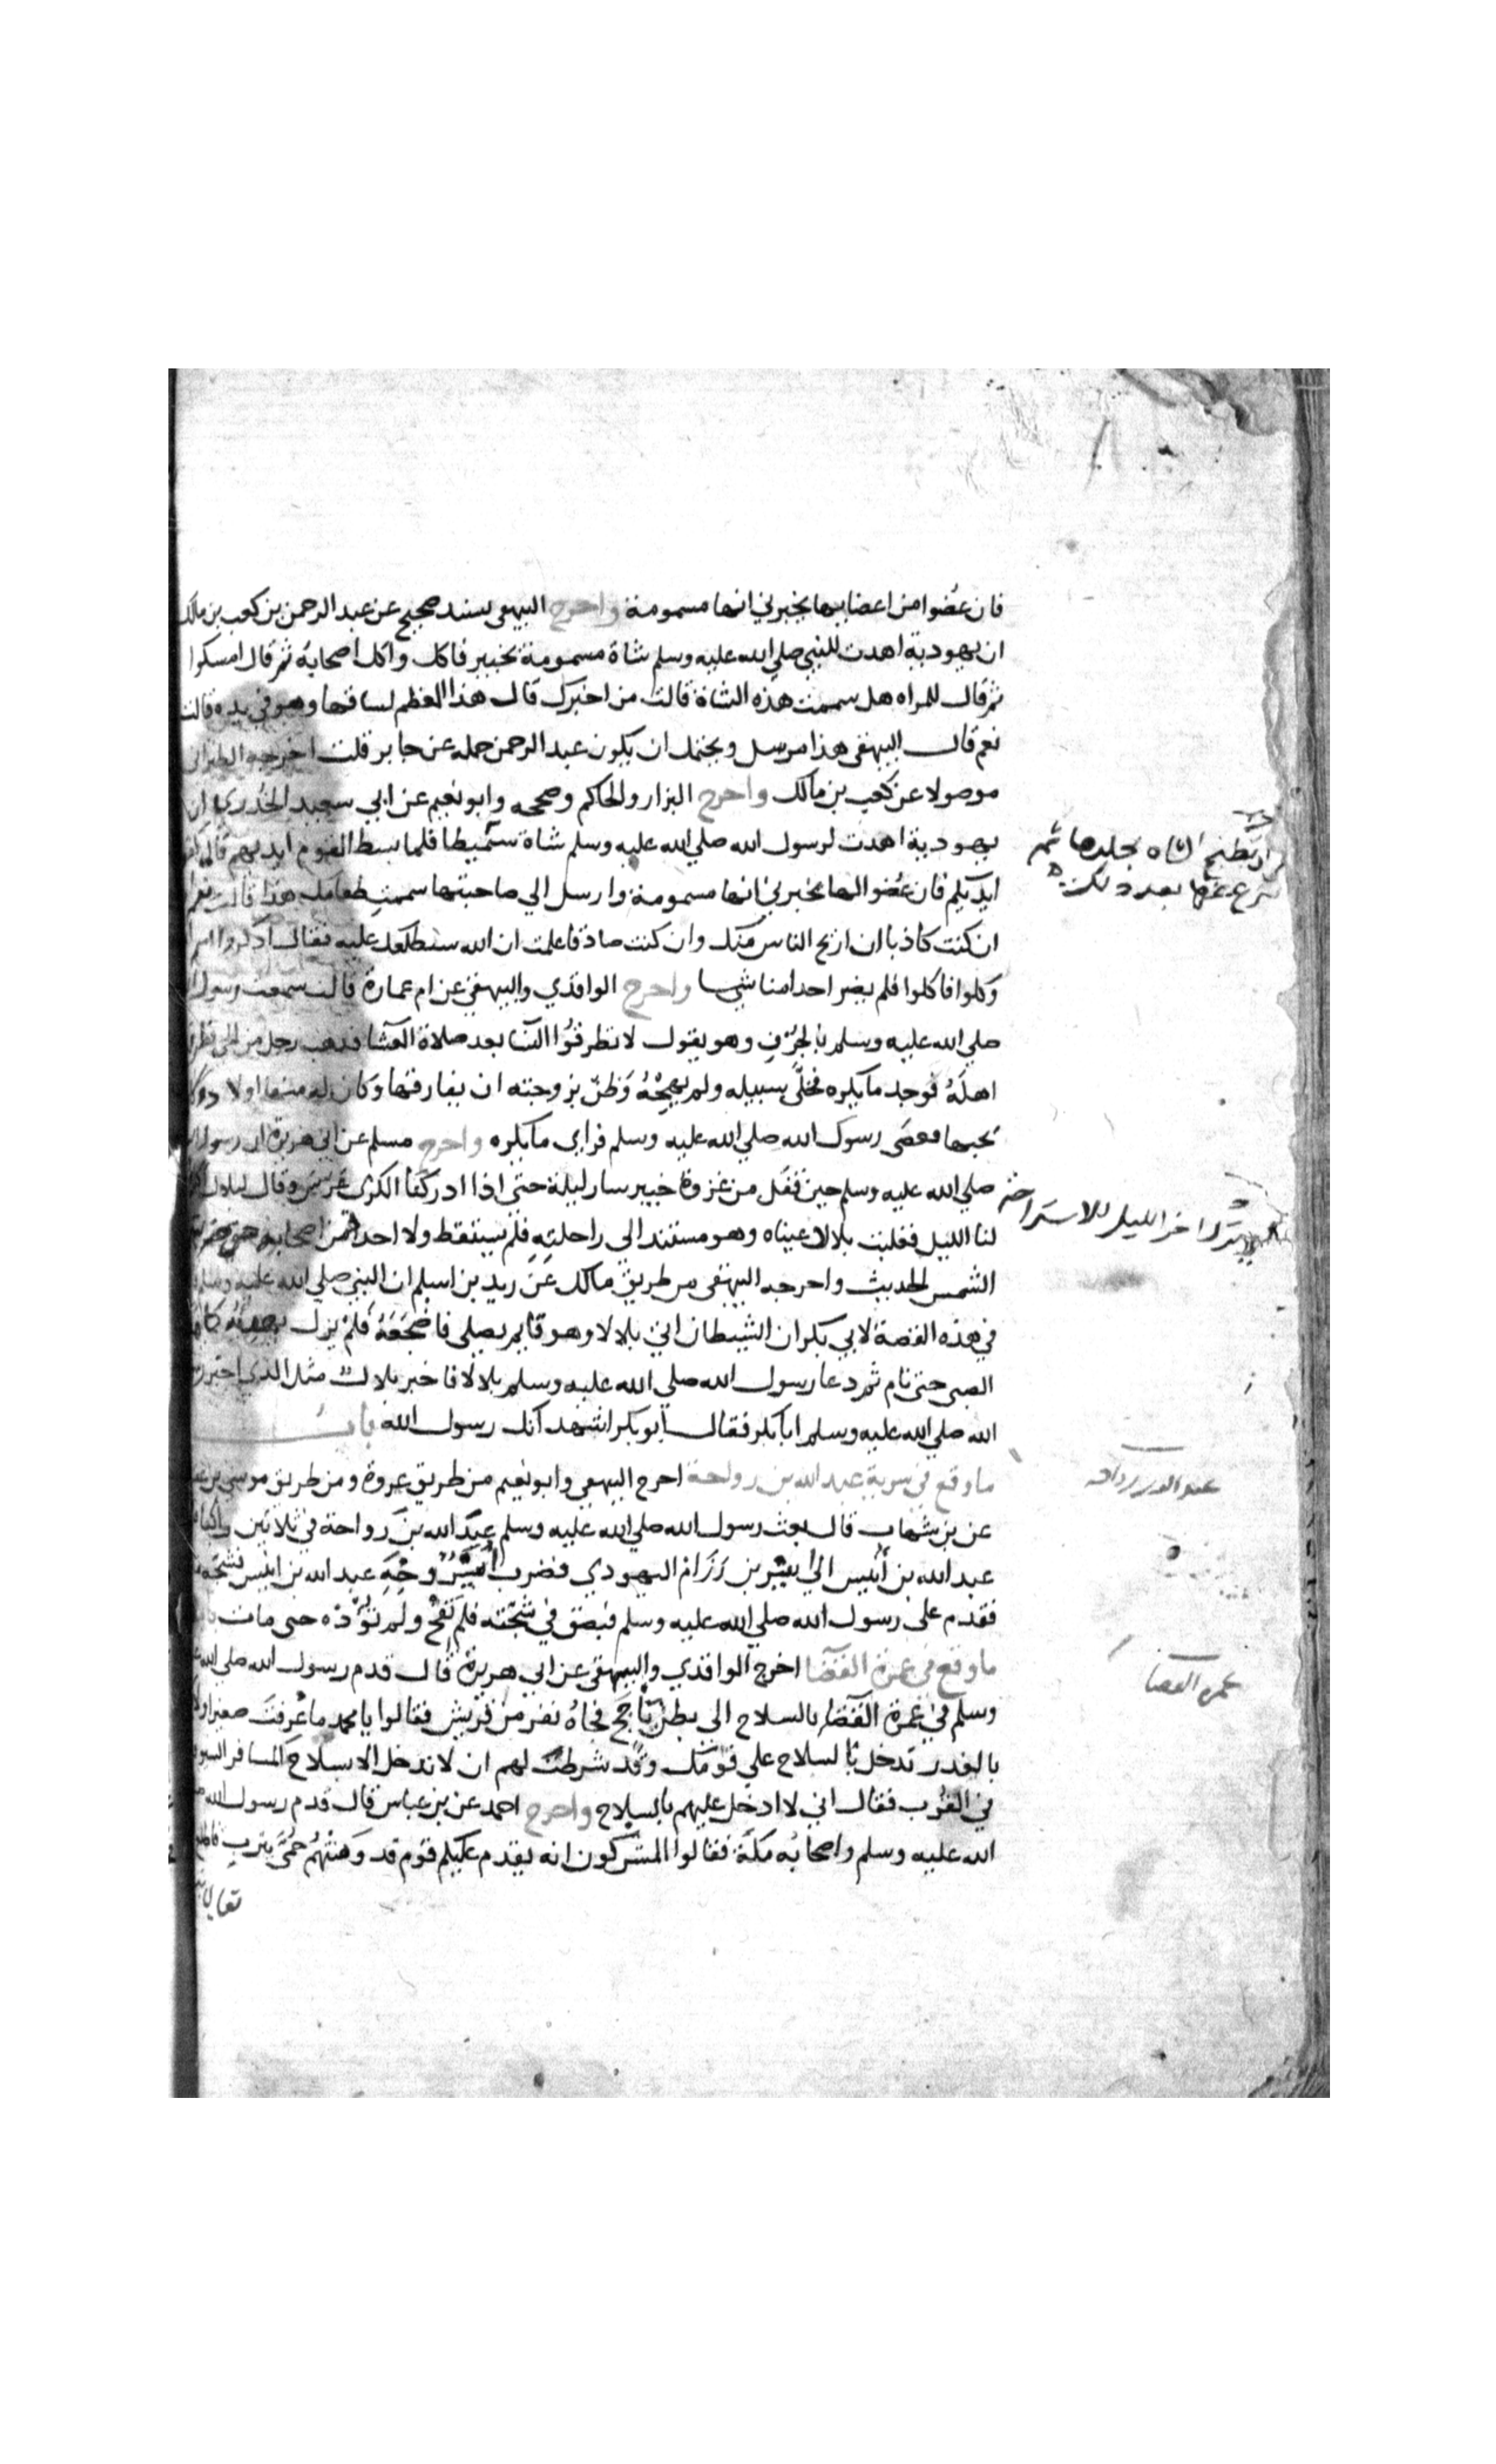 فان عُضوا من اعضايها يخبرني انها مسمومة واخرج البيهقي بسند صحيح عن عبد الرحمن بن كعب بن مالك
ان يهودية اهدت للنبي صلي الله عليه وسلم شاة مسمومة بخيبر فاكل واكل اصحابه ثم قال امسكوا
ثم قال للمراه هل سممت هذه الشاة قالت من اخبرك قال هذا العظم لساقها وهو في يده قالت
نعم قال البيهقي هذا مرسل ويحتمل ان يكون عبد الرحمن حمله عن جابر قلت اخرجه الطبراني
موصولا عن كعب بن مالك واخرج البزار والحاكم وصححه وابو نعيم عن ابي سعيد الخدري ان
يهودية اهدت لرسول الله صلي الله عليه وسلم شاة سَميطا فلما بسط القوم ايديهم قال
ايديكم فان عُضوا لها يخبرني انها مسمومة وارسل الي صاحبتها سممتِ طعامك هذا قالت نعم
ان كنت كاذبا ان اريح الناس منك وان كنت صادقا علمت ان الله سيطلعك عليه فقال اذكروا اسم
وكلوا فاكلوا فلم يضر احدا منا شيا واخرج الواقدي والبيهقي عن ام عمارة قالت سمعت رسول
صلي الله عليه وسلم بالجُرُفِ وهو يقول لا تطرقوُا النسا بعد صلاة العشا فذهب رجل من الحي فطرق
اهلَهُ فوجد ما يكره فخلَّي سبيله ولم يهِجْهُ وَظنَّ بزوجته ان يفارقها وكان له منها اولاد وكان
يحبها فعصَي رسول الله صلي الله عليه وسلم فراي ما يكره واخرج مسلم عن ابي هريرة ان رسول
صلي الله عليه وسلم حين قفل من غزوة خيبر سار ليلة حتى اذا ادركنا الكري عَرّس وقال لبلال
لنا الليل فغلبت بلالا عيناه وهو مستند الى راحلتِهِ فلم يستيقظ ولا احد من اصحابه حتى ضربتهم
الشمس الحديث واخرجه البيهقي من طريق مالك عَن زيد بن اسلم ان النبي صلي الله عليه وسلم
في هذه القصة لابي بكر ان الشيطان اتي بلالا وهو قايم يصلي فاضجَعَهُ فلم يزل يهديه كما
الصبي حتى نام ثم دعا رسول الله صلي الله عليه وسلم بلالا فاخبر بلال مثل الذي اخبر
الله صلي الله عليه وسلم ابا بكر فقال ابو بكر اشهد انك رسول الله باب
ما وقع في سرية عبد الله بن رواحة اخرج البيهقي وابو نعيم من طريق عروة ومن طريق موسي بن
عن بن شهاب قال بعث رسول الله صلي الله عليه وسلم عبد الله بن رواحة في ثلاثين راكبا
عبد الله بن أُنيس الي بشير بن رَزَام اليهودي فضرب وجه عبد الله بن انيس فشجه
فقدم على رسول الله صلي الله عليه وسلم فبصق في شجّته فلم تقح ولم تؤذه حتى مات
ما وقع في عمرة القضا اخرج الواقدي والبيهقي عن ابي هريرة قال قدم رسول الله صلي الله
وسلم في عمرة القضا بالسلاح الي بطن يَأجَج فجاهُ نفر من قريش فقالوا يا محمد ما عُرفتَ صغيرا ولا
بالغدر تدخل بالسلاح علي قومك وقد شرطت لهم ان لا تدخل الا بسلاح المسافر السيوف
في القُرُب فقال اني لا ادخل عليهم بالسلاح واخرج احمد عن بن عباس قال قدم رسول الله
الله عليه وسلم واصحابه مكة فقالوا المشركون انه يقدم عليكم قوم قد وهَنَتْهُم حُمّي يثرب
تطبخ الشاه بجلدها ثم
بعد ذلك
اخر الليل للاستراحة
عبد الله بن رواحه
عمرة القضا